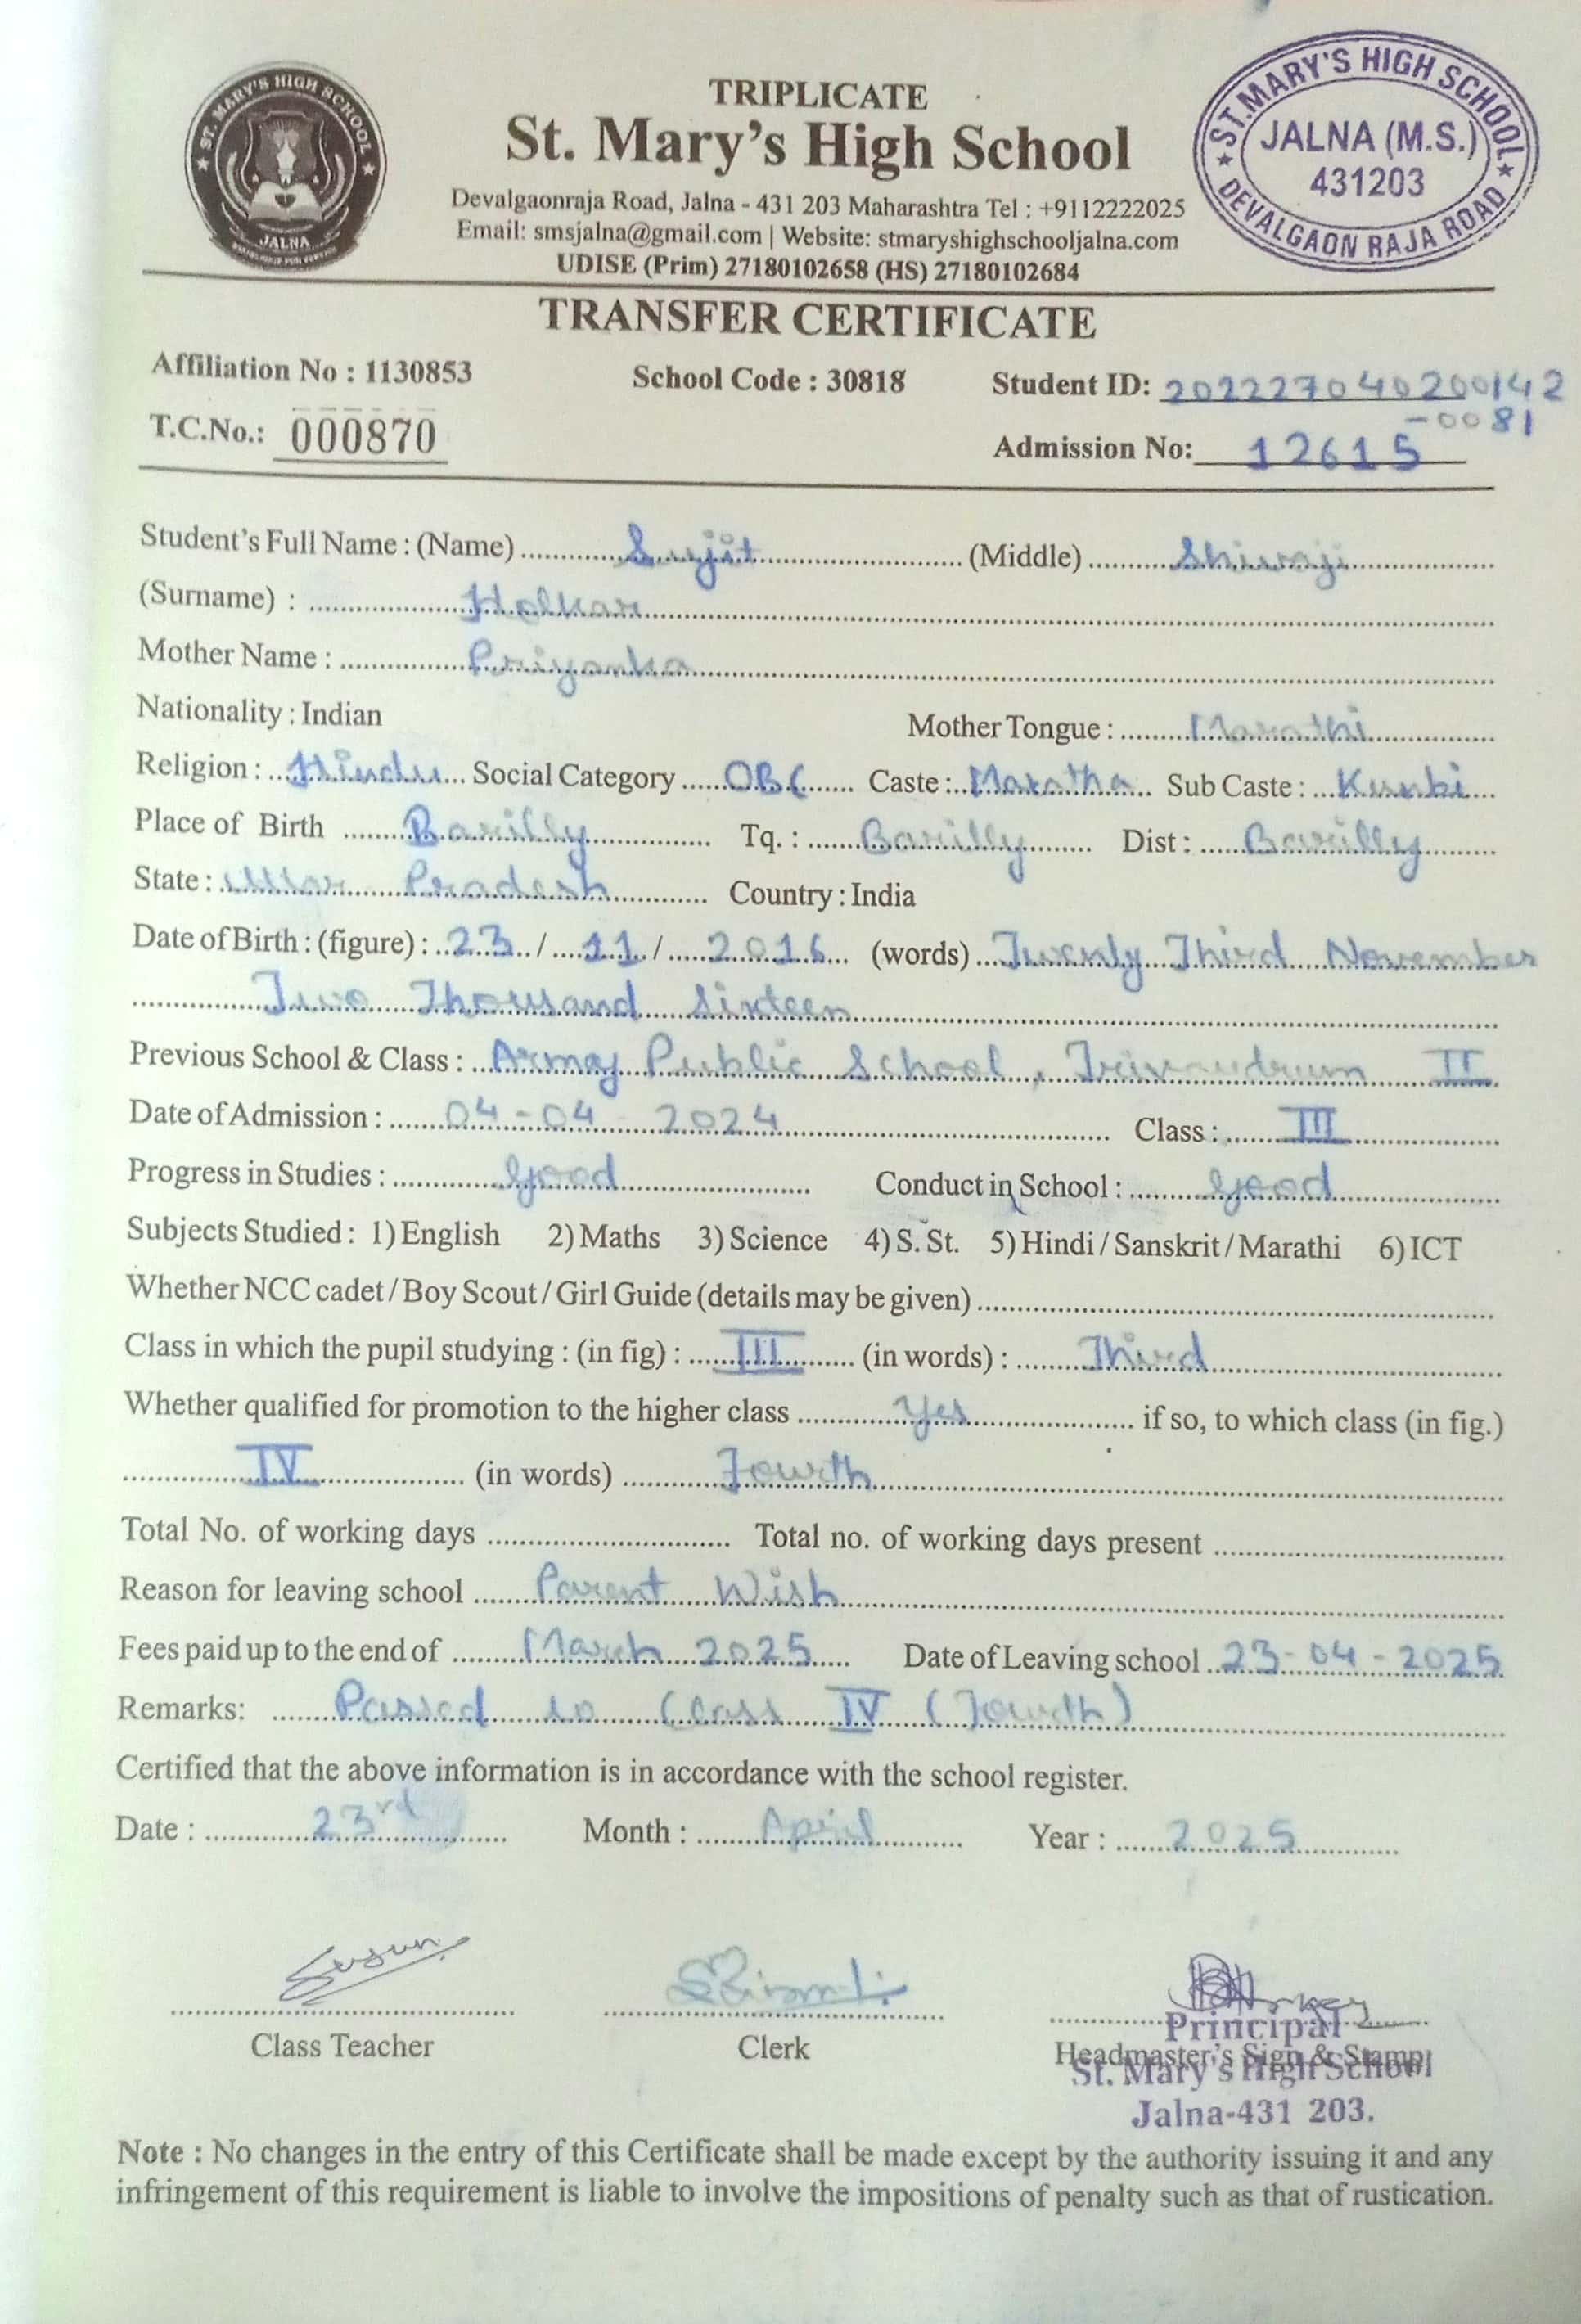 TRIPLICATE
St. Mary's High School
Devalgaonraja Road, Jalna - 431 203 Maharashtra Tel : +9112222025
Email: smsjalna@gmail.com | Website: stmaryshighschooljalna.com
UDISE (Prim) 27180102658 (HS) 27180102684
ST. MARY'S HIGH SCHOOL
JALNA
ST. MARY'S HIGH SCHOOL
JALNA (M.S.)
431203
DEVALGAON RAJA ROAD
TRANSFER CERTIFICATE
Affiliation No : 1130853 School Code : 30818 Student ID: 202227040200142
-0081
T.C.No.: 000870 Admission No: 12615
Student's Full Name : (Name) Sujit (Middle) Shivaji
(Surname) : Holkar
Mother Name : Priyanka
Nationality : Indian Mother Tongue : Marathi
Religion : Hindu Social Category OBC Caste : Maratha Sub Caste : Kunbi
Place of Birth Barilly Tq. : Barilly Dist : Barilly
State : Uttar Pradesh Country : India
Date of Birth : (figure) : 23 / 11 / 2016 (words) Twenly Third November
Two Thousand Sixteen
Previous School & Class : Army Public School, Trivandrum II
Date of Admission : 04-04-2024 Class : III
Progress in Studies : Good Conduct in School : Good
Subjects Studied : 1) English 2) Maths 3) Science 4) S. St. 5) Hindi / Sanskrit / Marathi 6) ICT
Whether NCC cadet / Boy Scout / Girl Guide (details may be given)
Class in which the pupil studying : (in fig) : III (in words) : Third
Whether qualified for promotion to the higher class Yes if so, to which class (in fig.)
IV (in words) Fourth
Total No. of working days Total no. of working days present
Reason for leaving school Parent Wish
Fees paid up to the end of March 2025 Date of Leaving school 23-04-2025
Remarks: Passed to Class IV (Fourth)
Certified that the above information is in accordance with the school register.
Date : 23rd Month : April Year : 2025
Class Teacher Clerk Headmaster's Sign & Stamp
Principal
St. Mary's High School
Jalna-431 203.
Note : No changes in the entry of this Certificate shall be made except by the authority issuing it and any
infringement of this requirement is liable to involve the impositions of penalty such as that of rustication.